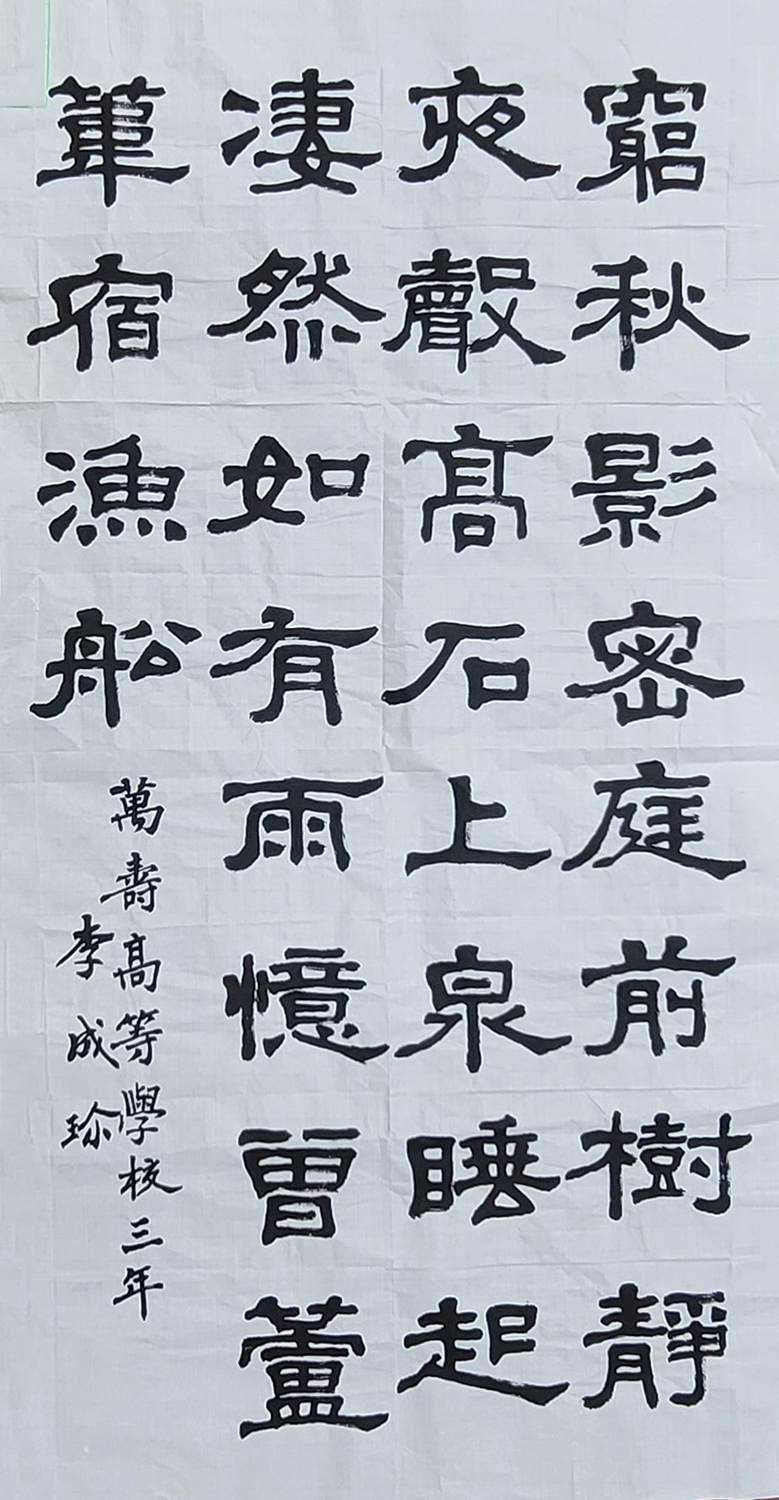 窮秋影密庭前樹靜
夜聲高石上泉睡起
凄然如有雨憶曾蘆
葦宿漁船
萬壽高等學校三年
李成珍